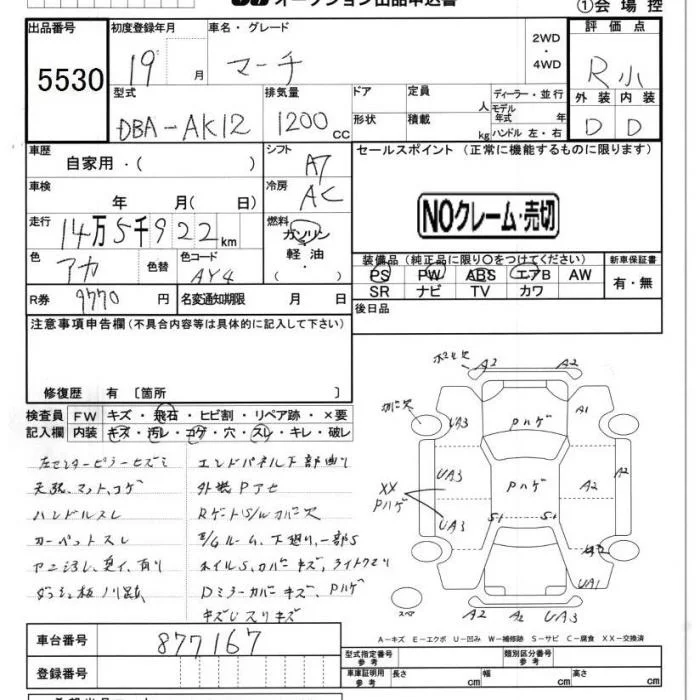 オークション出品申込書
①会場控
出品番号 初度登録年月 車名・グレード 評価点
5530 19 月 マーチ 2WD・4WD R小
型式 排気量 ドア 定員 人 ディーラー・並行 外装 内装
DBA-AK12 1200cc 形状 積載 kg モデル年式 年 ハンドル 左・右 D D
車歴 シフト セールスポイント (正常に機能するものに限ります)
自家用・( ) A7
車検 年 月( 日) 冷房 AC
NOクレーム・売切
走行 14万5千922km 燃料 ガソリン
軽油・( )
色 アカ 色替 色コード AY4
装備品(純正品に限り○をつけてください) 新車保証書
PS PW ABS エアB AW 有・無
SR ナビ TV カワ
R券 9770円 名変通知期限 月 日 後日品
注意事項申告欄(不具合内容等は具体的に記入して下さい)
修復歴 有 〔箇所 〕
検査員 FW キズ・飛石・ヒビ割・リペア跡・×要
記入欄 内装 キズ・汚レ・コゲ・穴・スレ・キレ・破レ
左センターピラーヒズミ エンドパネル下部曲り
天張、マット、コゲ 外装Pアセ
ハンドルスレ Rゲート S/W カバー欠
カーペットスレ E/Gルーム、下廻り、一部S
ヤニ汚レ、臭イ、有り ホイルS、カバーキズ、ライトクモリ
ダッシュ板ノリ跡 Dミラーカバーキズ、Pハゲ
キズUスリキズ
A2 A2
カバー欠 UA3 Pハゲ A1
UA3 Pハゲ A2 A2
XX Pハゲ
UA3 S1 S1
UA1
スペア A2 A2 UA3
A-キズ E-エクボ U-凹み W-補修跡 S-サビ C-腐食 XX-交換済
車台番号 877167
型式指定番号 参考 類別区分番号 参考
登録番号
車庫証明用 参考 長さ cm 幅 cm 高さ cm